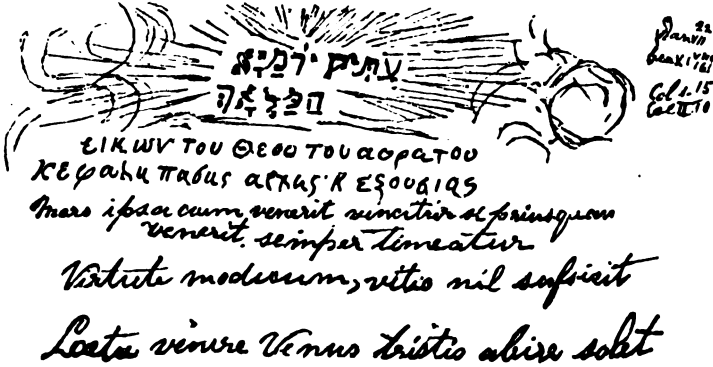 עתיק יומיא
Dan VII 22
Col 1.15
Col II.10
εικων του θεου του αορατου
κεφαλη πασης αρχης κ εξουσιας
Mors ipsa cum venerit vincitur se priusquam
venerit, semper timeatur
Virtuti modicum, vitio nil sufficit
Laeta venire Venus tristis abire solet